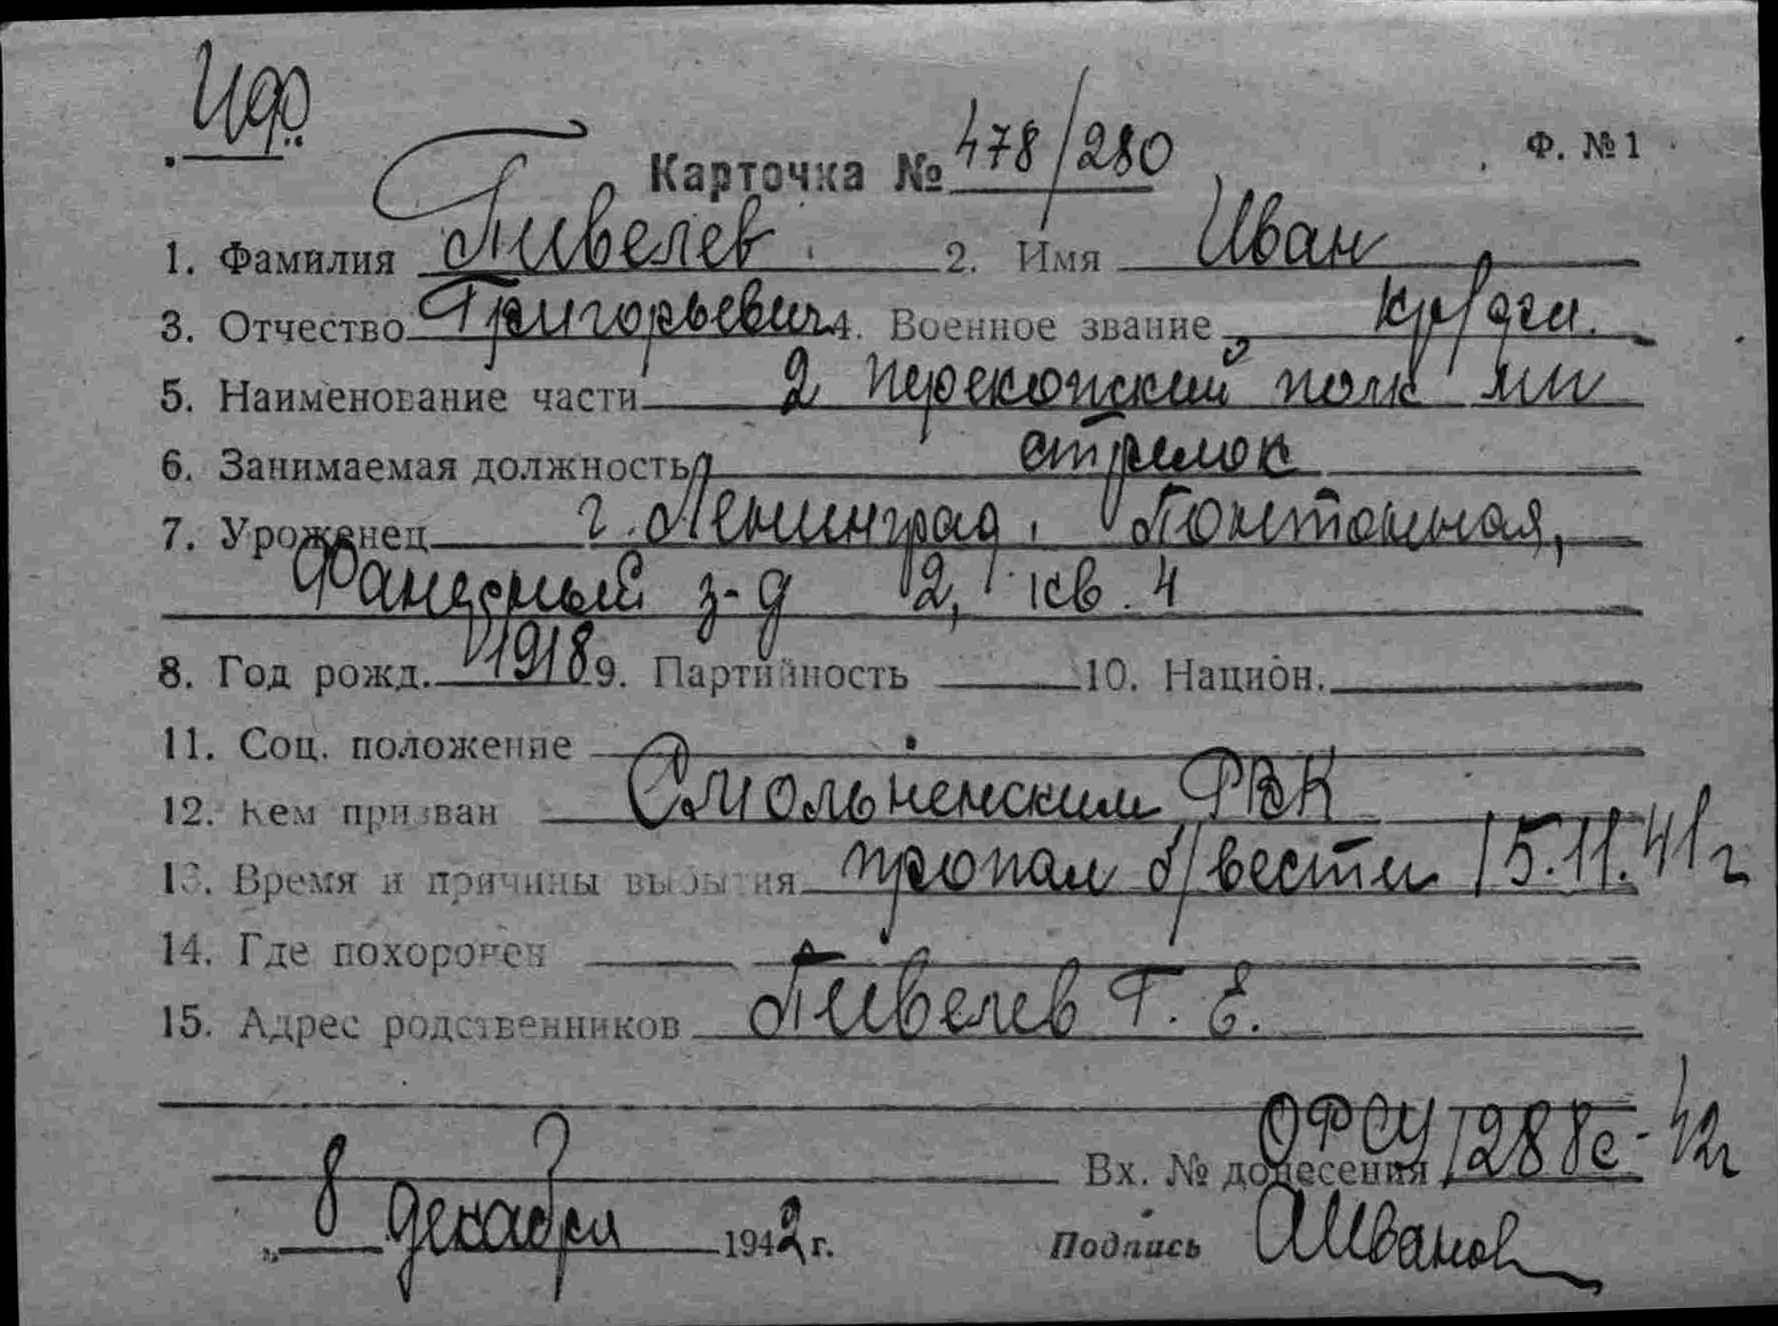 Карточка № 478/280 Ф. № 1
1. Фамилия Пивелев 2. Имя Иван
3. Отчество Григорьевич 4. Военное звание кр/дец.
5. Наименование части 2 Перекопский полк мп
6. Занимаемая должность стрелок
7. Уроженец г. Ленинград, Понтонная,
Фанерный з-д 2, кв. 4
8. Год рожд. 1918 9. Партийность 10. Национ.
11. Соц. положение
12. Кем призван Смольненским РВК
13. Время и причины выбытия пропал б/вести 15.11.41 г
14. Где похоронен
15. Адрес родственников Пивелев Г. Е.
Вх. № донесения 1288с-42г
„ 8 декабря 1942 г. Подпись АИванов